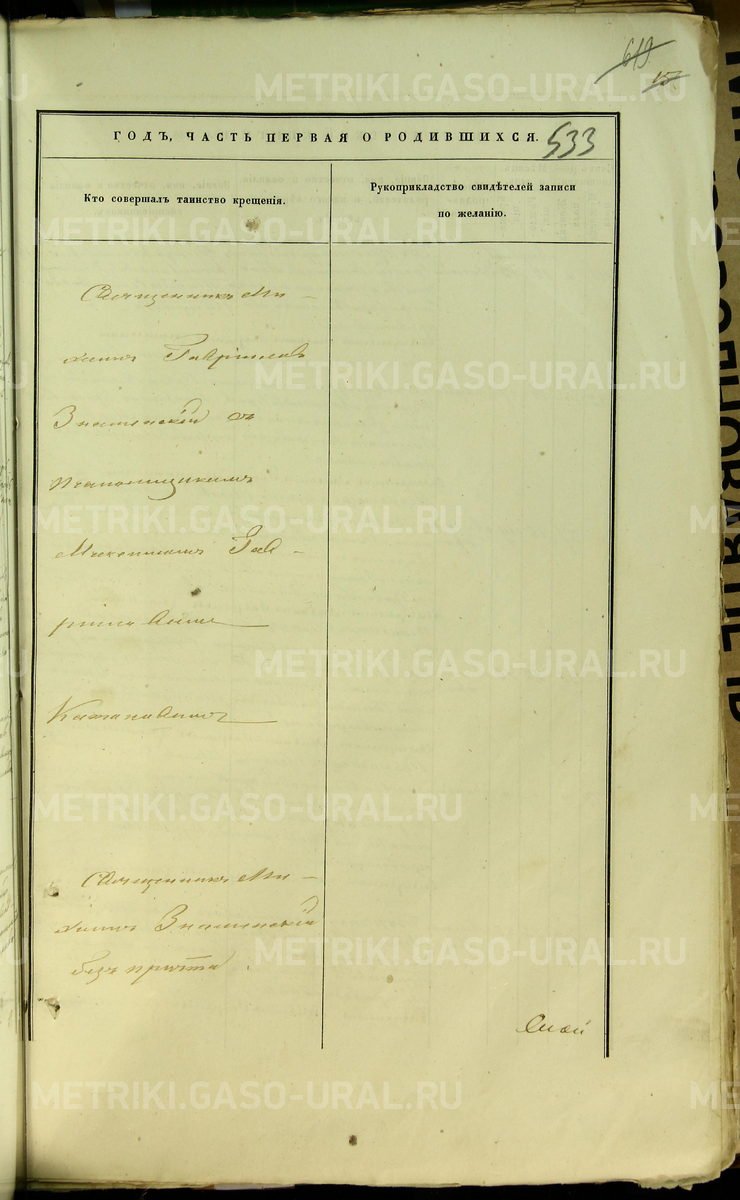 619.
15
ГОДЪ, ЧАСТЬ ПЕРВАЯ О РОДИВШИХСЯ.
533
Кто совершалъ таинство крещенія.
Рукоприкладство свидѣтелей записи
по желанію.
Священникъ Ми-
хаилъ Гавріиловъ
Знаменскій съ
Псаломщикомъ
Максимомъ Гав-
ріиловымъ
Священникъ Ми-
хаилъ Знаменскій
безъ причта
METRIKI.GASO-URAL.RU